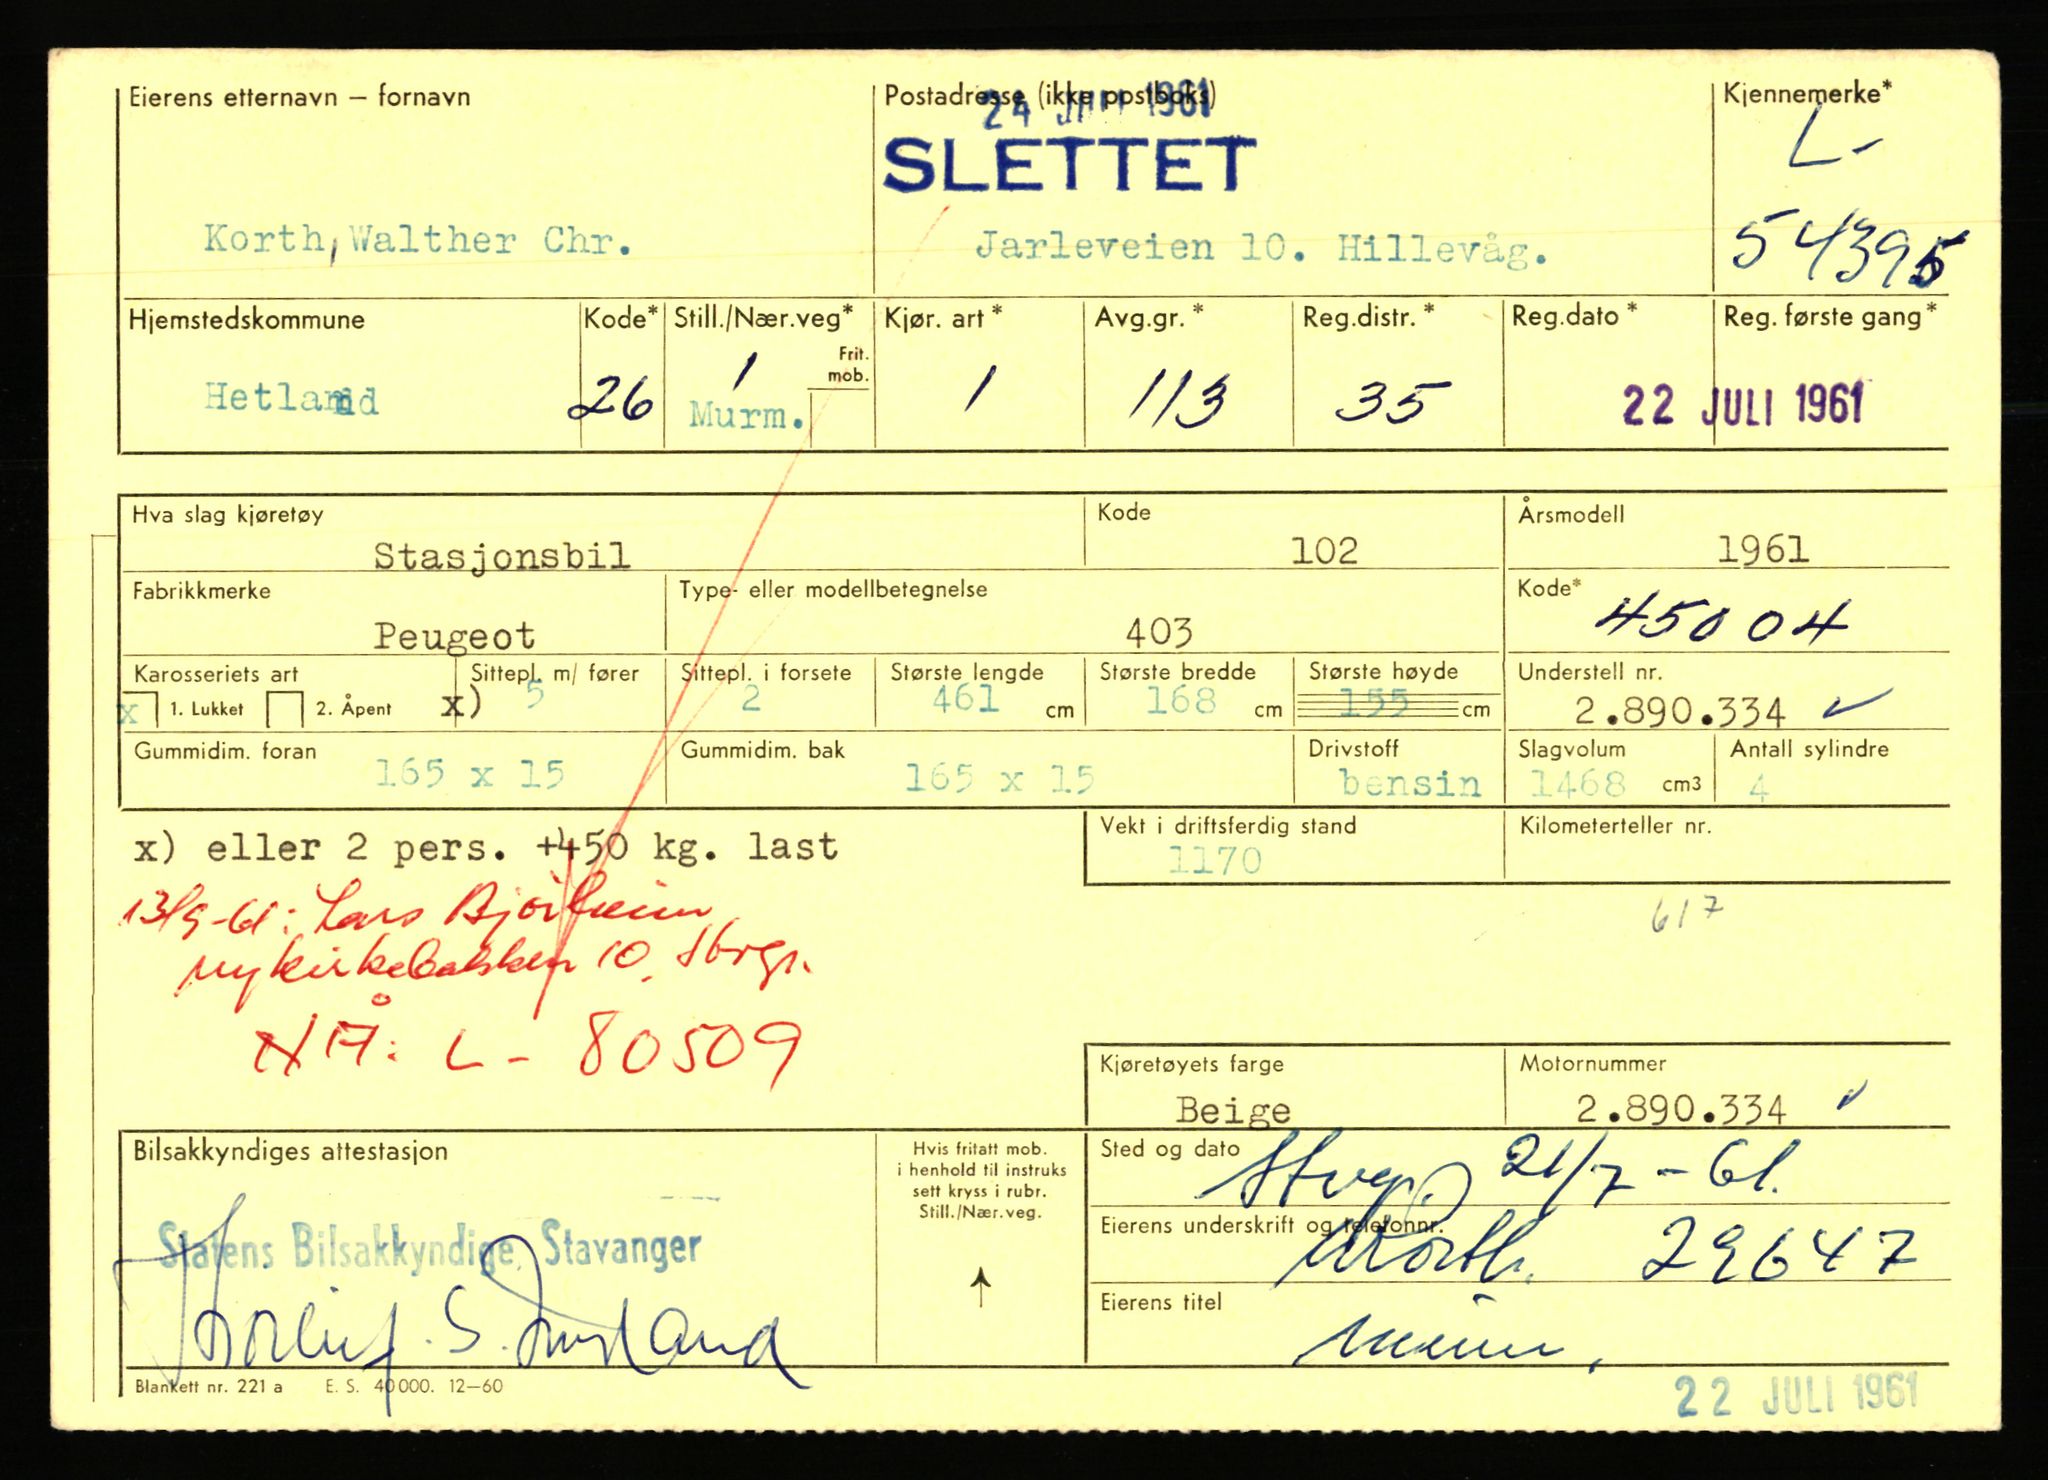 Eierens etternavn – fornavn
Postadresse (ikke postboks)
Kjennemerke*
24 1961
SLETTET
L-
Korth, Walther Chr.
Jarleveien 10. Hillevåg.
54395
Hjemstedskommune
Kode*
Still./Nær.veg*
Frit. mob.
Kjør. art *
Avg.gr. *
Reg.distr. *
Reg.dato *
Reg. første gang*
Hetland
26
1
Murm.
1
113
35
22 JULI 1961
Hva slag kjøretøy
Kode
Årsmodell
Stasjonsbil
102
1961
Fabrikkmerke
Type- eller modellbetegnelse
Kode*
Peugeot
403
45004
Karosseriets art
Sittepl. m/ fører
Sittepl. i forsete
Største lengde
Største bredde
Største høyde
Understell nr.
x 1. Lukket 2. Åpent
x) 5
2
461 cm
168 cm
155 cm
2.890.334 ✓
Gummidim. foran
Gummidim. bak
Drivstoff
Slagvolum
Antall sylindre
165 x 15
165 x 15
bensin
1468 cm3
4
x) eller 2 pers. +450 kg. last
Vekt i driftsferdig stand
Kilometerteller nr.
1170
13/9-61: Lars Bjørheim
Nykirkebakken 10, Stvgr.
NÅ: L - 80509
617
Kjøretøyets farge
Motornummer
Beige
2.890.334 ✓
Bilsakkyndiges attestasjon
Hvis fritatt mob.
i henhold til instruks
sett kryss i rubr.
Still./Nær.veg.
Sted og dato
Stvgr. 21/7-61.
Statens Bilsakkyndige, Stavanger
Eierens underskrift og telefonnr.
Korth. 29647
Eierens titel
Blankett nr. 221 a E. S. 40 000. 12–60
22 JULI 1961